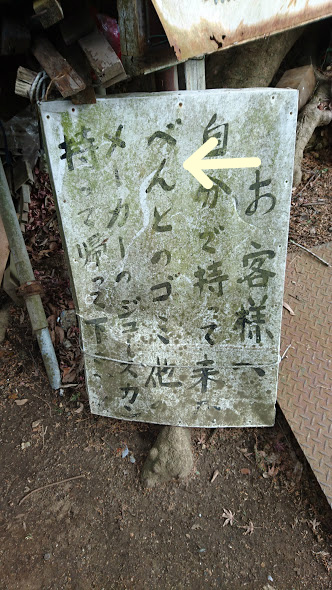 お客様へ
自分で持って来た
べんとのゴミ、他の
メーカーのジュースカン
持って帰って下